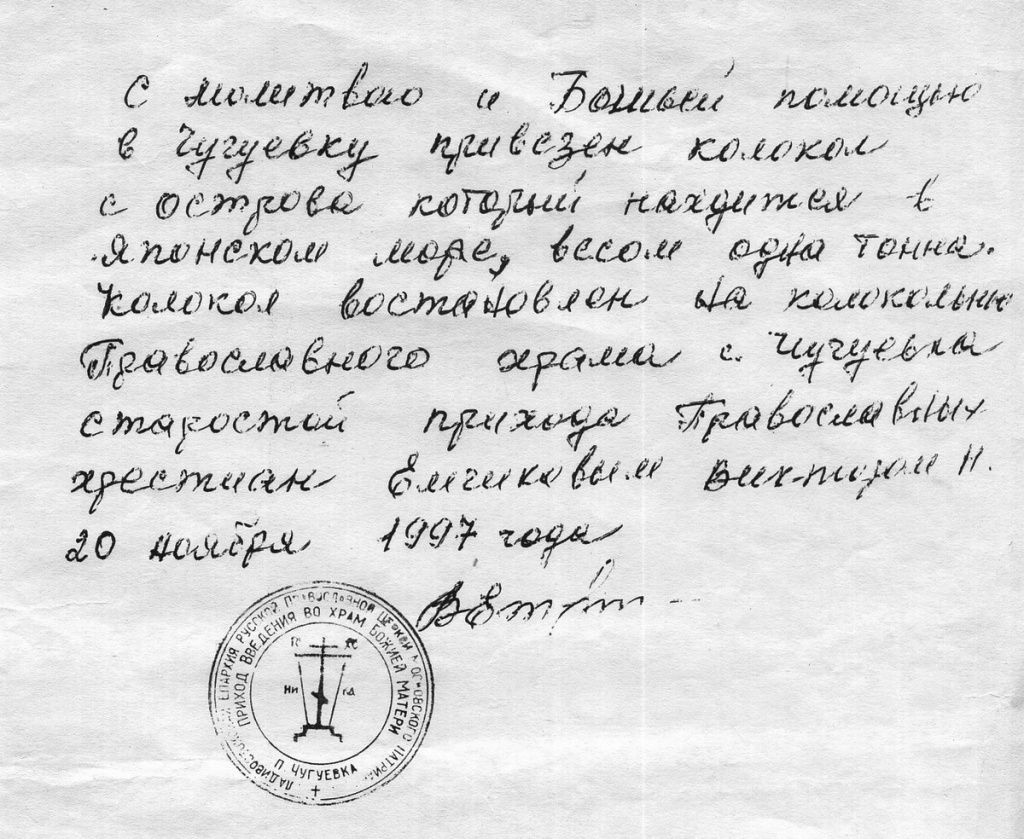 С молитваю и Божьей помощью
в Чугуевку привезен колокол
с острова который находится в
Японском море, весом одна тонна.
Колокол востановлен на колокольню
Православного храма с. Чугуевка
старостой прихода Православных
хрестиан Емчиковым Виктором Н.
20 ноября 1997 года
ЕПАРХИЯ РУССКОЙ ПРАВОСЛАВНОЙ ЦЕРКВИ МОСКОВСКОГО
ПРИХОД ВВЕДЕНИЯ ВО ХРАМ БОЖИЕЙ МАТЕРИ
НИ КА
П. ЧУГУЕВКА